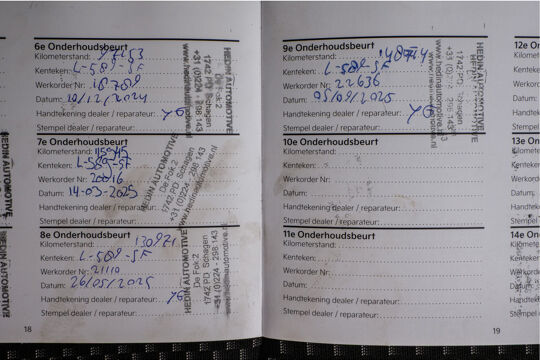 6e Onderhoudsbeurt
Kilometerstand:
Kenteken: L-589-SF
Werkorder Nr:
Datum: 10/12/2024
Handtekening dealer / reparateur: YG
Stempel dealer / reparateur:
HEDIN AUTOMOTIVE
De Fok 2
1742 PD Schagen
+31 (0)224 - 298 143
www.hedinautomotive.nl
7e Onderhoudsbeurt
Kilometerstand:
Kenteken: L-589-SF
Werkorder Nr: 20016
Datum: 14-03-2025
Handtekening dealer / reparateur:
Stempel dealer / reparateur:
HEDIN AUTOMOTIVE
De Fok 2
1742 PD Schagen
+31 (0)224 - 298 143
www.hedinautomotive.nl
8e Onderhoudsbeurt
Kilometerstand: 130971
Kenteken: L-589-SF
Werkorder Nr: 21110
Datum: 26/05/2025
Handtekening dealer / reparateur: YG
Stempel dealer / reparateur:
HEDIN AUTOMOTIVE
De Fok 2
1742 PD Schagen
+31 (0)224 - 298 143
www.hedinautomotive.nl
18
HEDIN AUTOMOTIVE
HEDIN AUTOMOTIVE
9e Onderhoudsbeurt
Kilometerstand:
Kenteken: L-589-SF
Werkorder Nr: 22636
Datum: 05/09/2025
Handtekening dealer / reparateur: YG
Stempel dealer / reparateur:
HEDIN AUTOMOTIVE
1742 PD Schagen
www.hedinautomotive.nl
10e Onderhoudsbeurt
Kilometerstand:
Kenteken:
Werkorder Nr:
Datum:
Handtekening dealer / reparateur:
Stempel dealer / reparateur:
11e Onderhoudsbeurt
Kilometerstand:
Kenteken:
Werkorder Nr:
Datum:
Handtekening dealer / reparateur:
Stempel dealer / reparateur:
19
12e On
Kilometers
Kenteken:
Werkorder
Datum:
Handteken
Stempel de
13e On
14e On